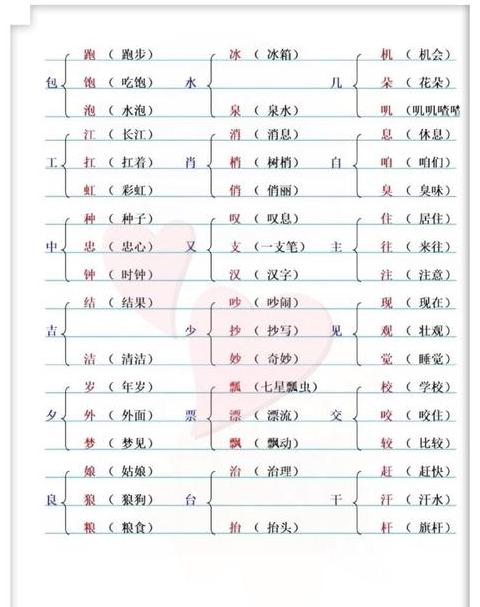 跑（跑步） 冰（冰箱） 机（机会）
包 饱（吃饱） 水 几 朵（花朵）
泡（水泡） 泉（泉水） 叽（叽叽喳喳
江（长江） 消（消息） 息（休息）
工 扛（扛着） 肖 梢（树梢） 自 咱（咱们）
虹（彩虹） 俏（俏丽） 臭（臭味）
种（种子） 叹（叹息） 住（居住）
中 忠（忠心） 又 支（一支笔） 主 往（来往）
钟（时钟） 汉（汉字） 注（注意）
结（结果） 吵（吵闹） 现（现在）
吉 少 抄（抄写） 见 观（壮观）
洁（清洁） 妙（奇妙） 觉（睡觉）
岁（年岁） 瓢（七星瓢虫） 校（学校）
夕 外（外面） 票 漂（漂流） 交 咬（咬住）
梦（梦见） 飘（飘动） 较（比较）
娘（姑娘） 治（治理） 赶（赶快）
良 狼（狼狗） 台 干 汗（汗水）
粮（粮食） 抬（抬头） 杆（旗杆）